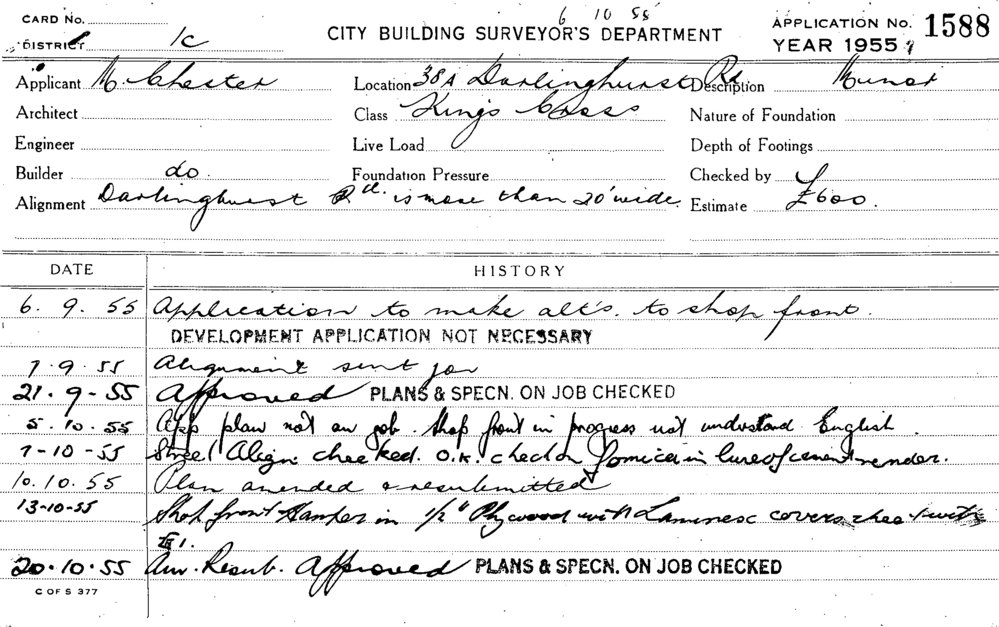 CARD No.
6 10 55
CITY BUILDING SURVEYOR'S DEPARTMENT
APPLICATION No. 1588
DISTRICT 1c
YEAR 1955
Applicant M. Chester Location 38A Darlinghurst Rd Description Minor
Architect Class Kings Cross Nature of Foundation
Engineer Live Load Depth of Footings
Builder do. Foundation Pressure Checked by
Alignment Darlinghurst Rd. is more than 20' wide. Estimate £600.
DATE HISTORY
6. 9. 55 Application to make alt's. to shop front.
DEVELOPMENT APPLICATION NOT NECESSARY
7. 9. 55 Alignment sent for
21. 9 - 55 Approved PLANS & SPECN. ON JOB CHECKED
5. 10. 55 App plan not on job. Shop front in progress not understand English.
7-10-55 Street Align. checked. O.K. check on Formica in lieu of cement render.
10. 10. 55 Plan amended & resubmitted
13-10-55 Shop front Hamper in 1/2" Plywood with Laminex covers check with
20. 10. 55 Am. Resub. Approved PLANS & SPECN. ON JOB CHECKED
C OF S 377